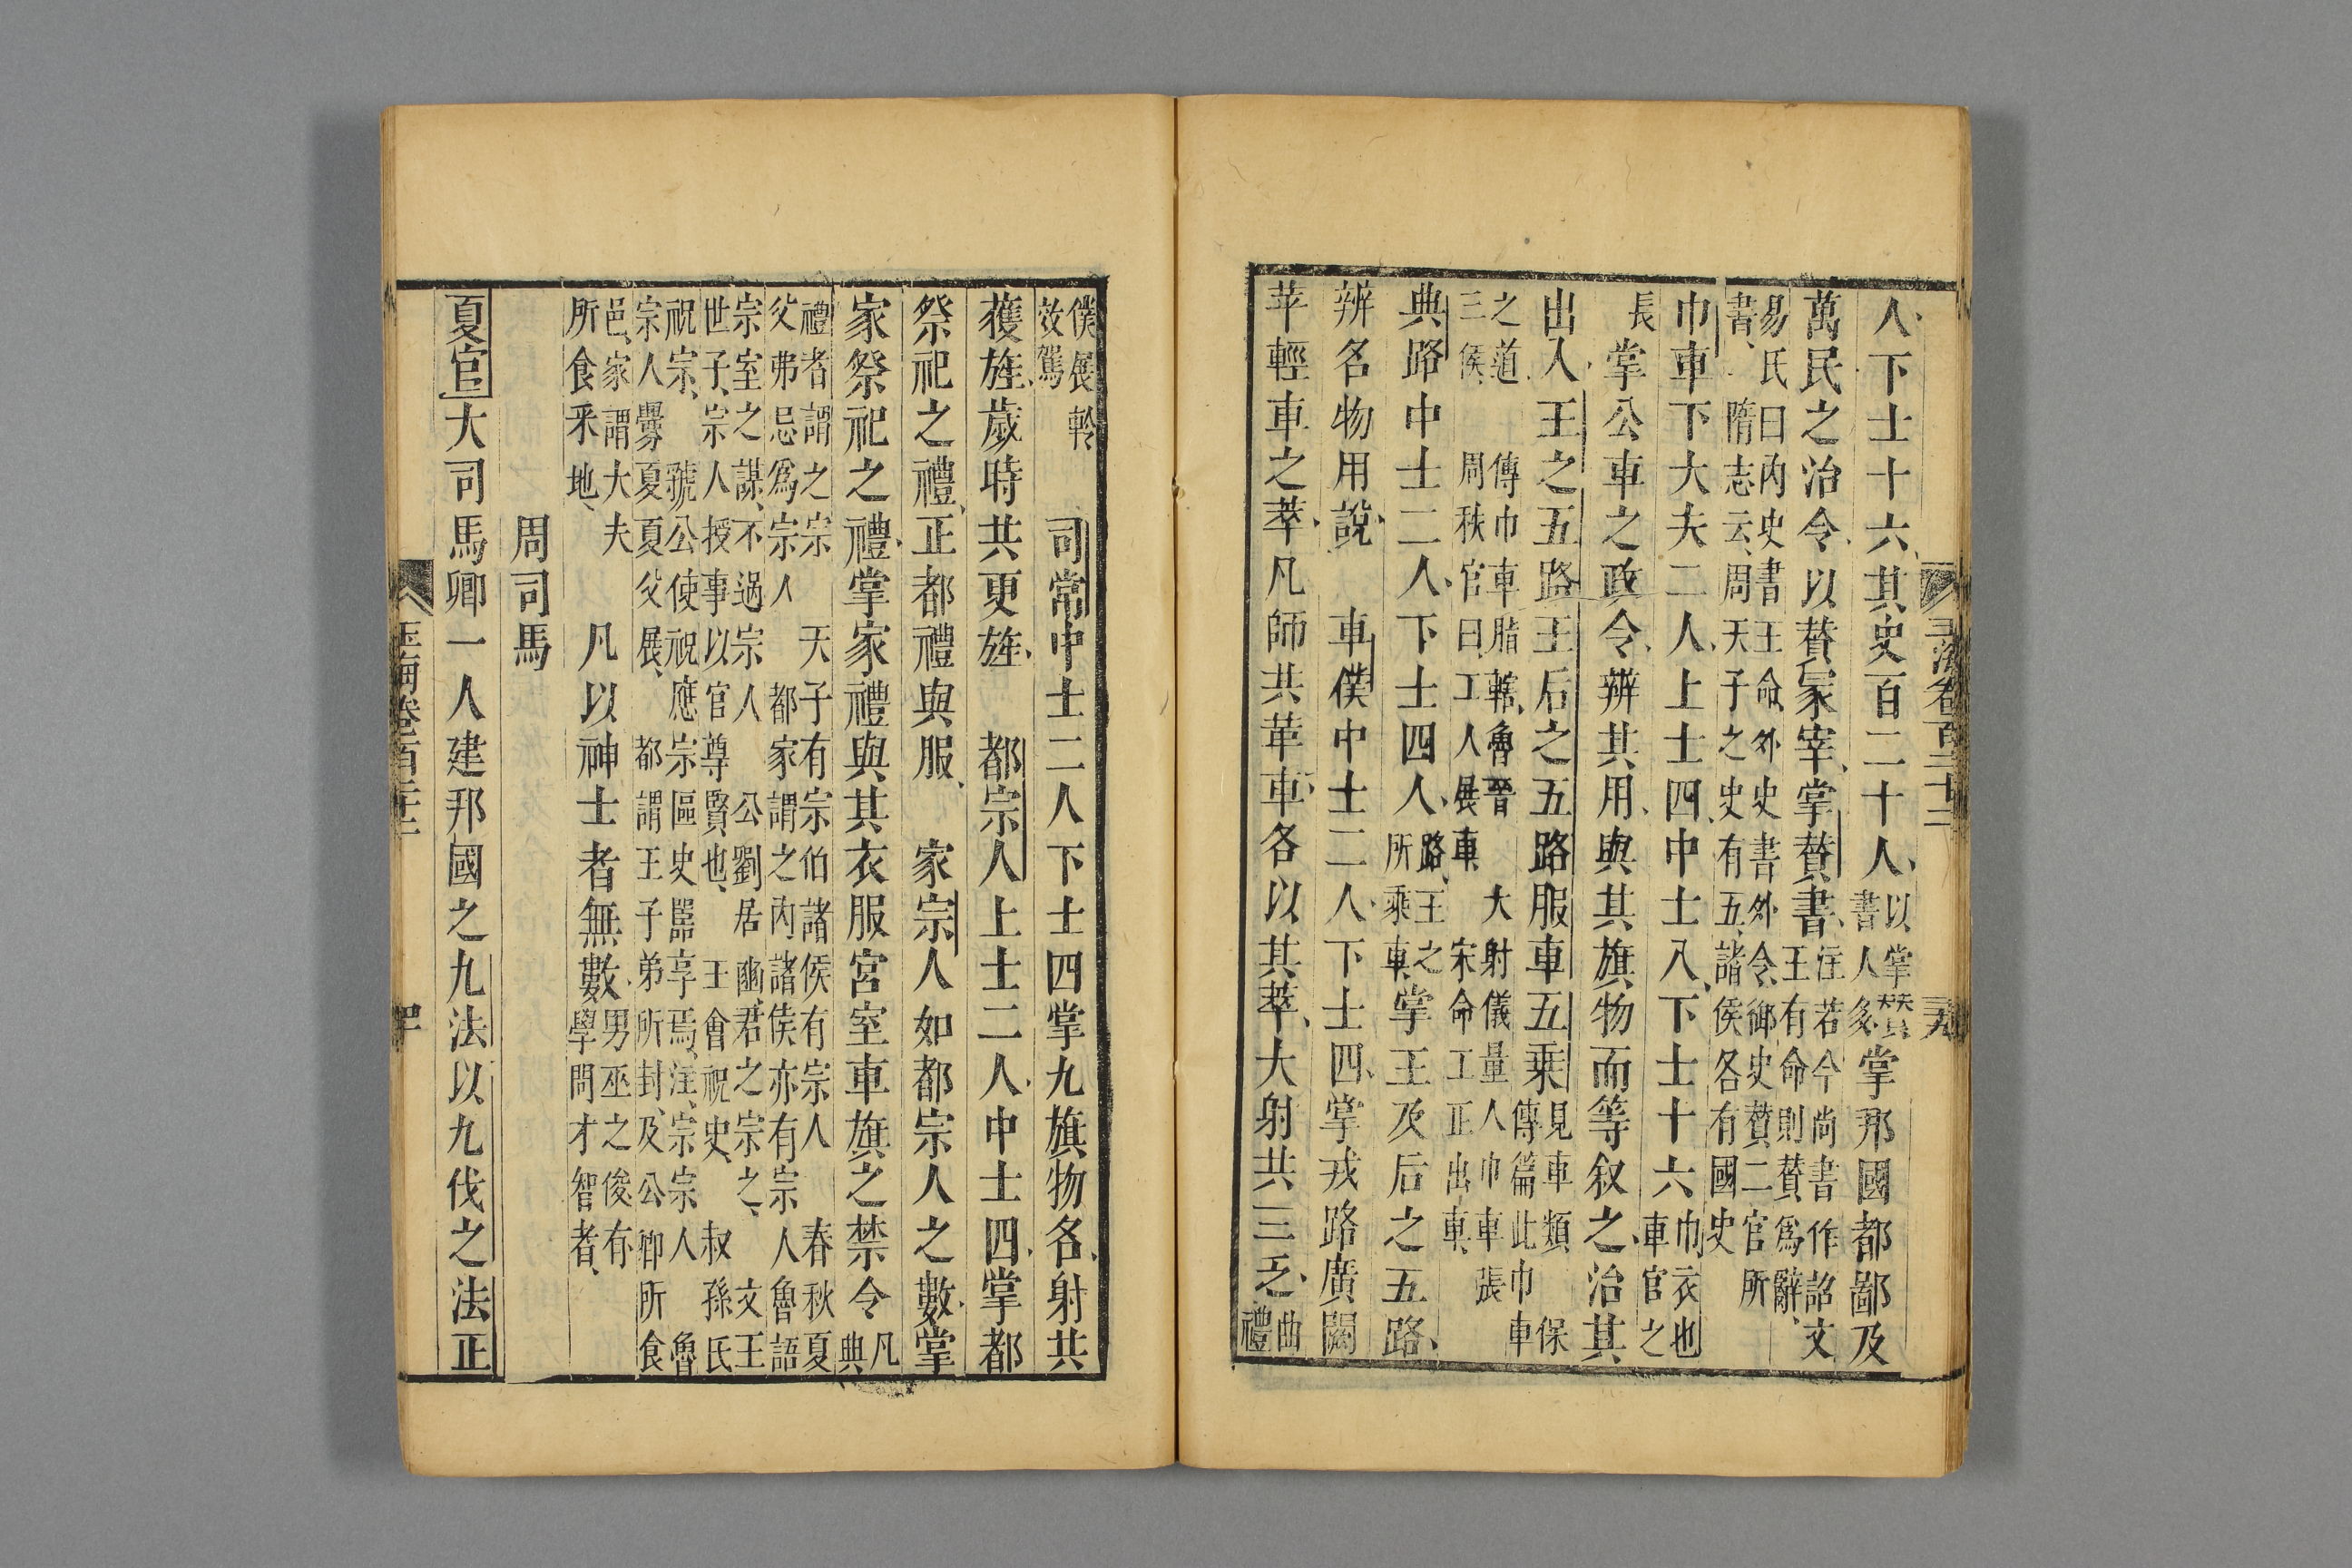 人下士十六其史百二十人以掌贊書人多掌邦國都鄙及
萬民之治令以贊冢宰掌贊書注若今尚書作詔文王有命則贊爲辭
易氏曰內史書王命外史書外令御史贊二官所書隋志云周天子之史有五諸侯各有國史
巾車下大夫二人上士四中士八下士十六巾衣也車官之
長掌公車之政令辨其用與其旗物而等叙之治其
出入王之五路王后之五路服車五乗見車類傳篇此巾車保
之道三侯傳巾車脂轄魯晉周秋官曰工人展車大射儀量人巾車張宋命工正出車
典路中士二人下士四人路王之所乘車掌王及后之五路
辨名物用說車僕中士二人下士四掌戎路廣闕
苹輕車之萃凡師共革車各以其萃大射共三乏曲禮
僕展軨效駕司常中士二人下士四掌九旗物名射共
獲旌歲時共更旌都宗人上士二人中士四掌都
祭祀之禮正都禮與服家宗人如都宗人之數掌
家祭祀之禮掌家禮與其衣服宮室車旗之禁令凡典
禮者謂之宗天子有宗伯諸侯有宗人春秋夏父弗忌爲宗人都家謂之內諸侯亦有宗人魯語
宗室之謀不過宗人公劉居豳君之宗之文王世子宗人授事以官尊賢也王會祝史叔孫氏
祝宗虢公使祝應宗區史嚚享焉注宗宗人魯宗人釁夏夏父展都謂王子弟所封及公卿所食
邑家謂大夫所食采地凡以神士者無數男巫之俊有學問才智者
周司馬
夏官大司馬卿一人建邦國之九法以九伐之法正
玉海卷百二十二